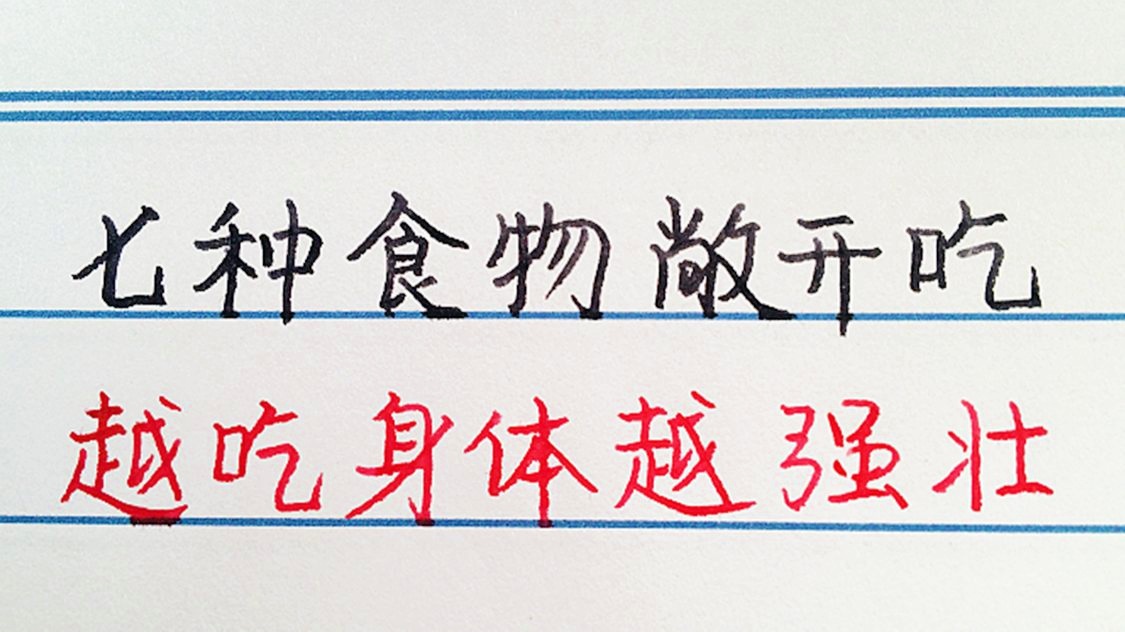 七种食物敞开吃
越吃身体越强壮